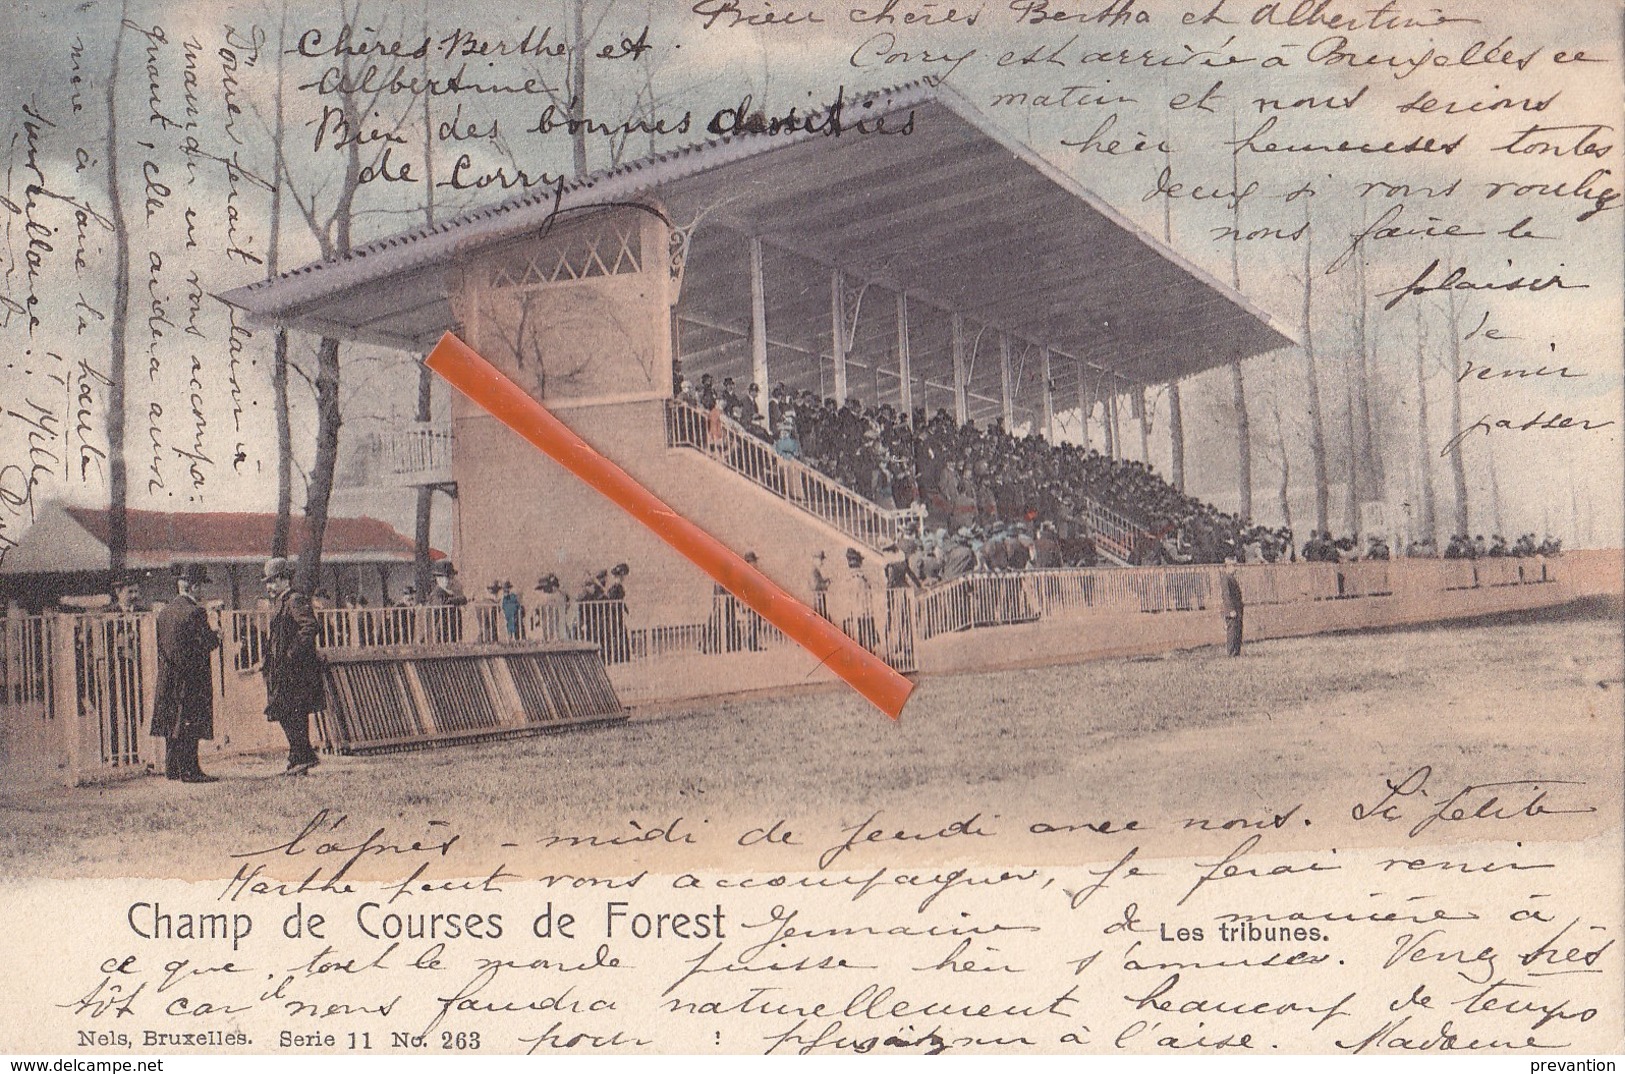 Chères Berthe et
Albertine
Bien des bonnes
de Corry
Bien chères Bertha et Albertine
Corry est arrivée à Bruxelles ce
matin et nous serions
bien heureuses toutes
deux si vous vouliez
nous faire le
plaisir
de
venir
passer
l'après-midi de jeudi avec nous. Si petite
Marthe peut vous accompagner, je ferai venir
Germaine de manière à
ce que tout le monde puisse bien s'amuser. Venez très
tôt car il nous faudra naturellement beaucoup de temps
pour à l'aise. Madame
Doner ferait plaisir à
maman en vous accompa-
gnant, elle aidera aussi
mère à faire la haute
surveillance!! Mille
Champ de Courses de Forest
Les tribunes.
Nels, Bruxelles. Serie 11 No. 263
www.delcampe.net
prevantion